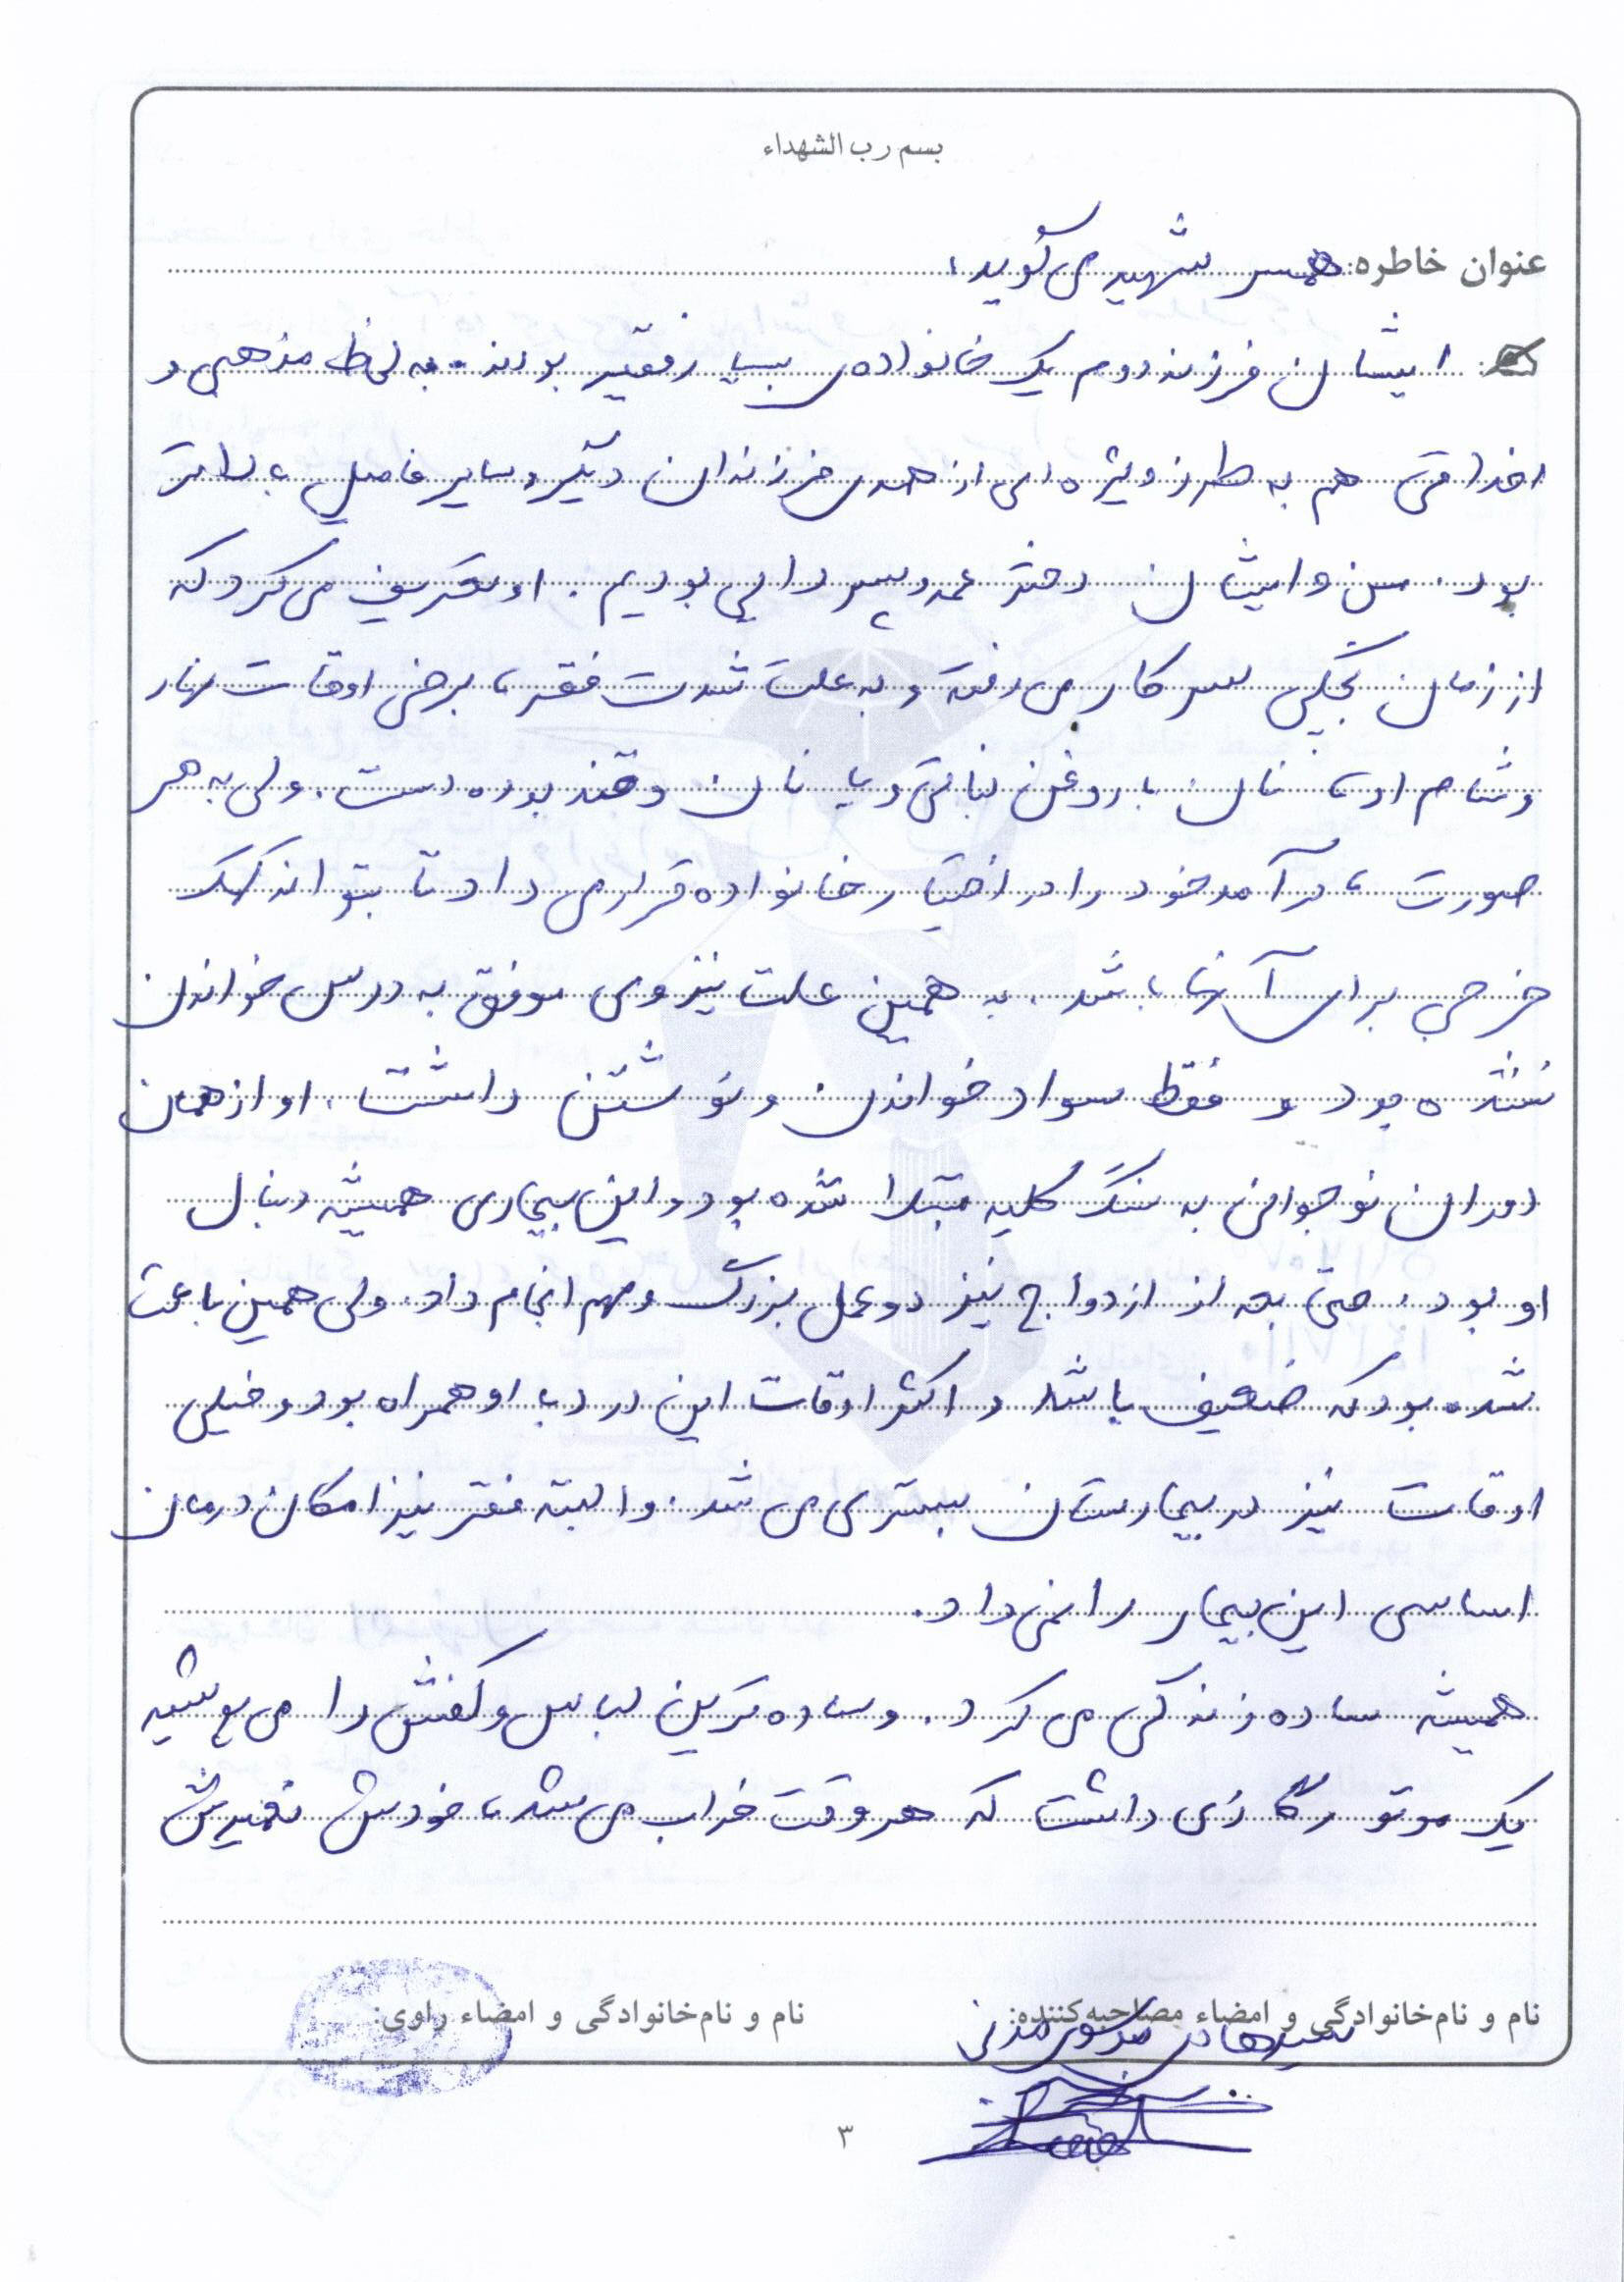 بسم رب الشهداء
عنوان خاطره: همسر شهید می‌گوید:
ایشان فرزند دوم یک خانواده‌ی بسیار فقیر بودند. به لحاظ مذهبی و
اخلاقی هم به طرز ویژه‌ای از همه‌ی فرزندان دیگر و سایر فامیل بالاتر
بود. من و ایشان دختر عمه و پسر دایی بودیم. او تعریف می‌کرد که
از زمان بچگی سر کار می‌رفته و به علت شدت فقر، برخی اوقات نهار
و شام او، نان با روغن نباتی و یا نان و قند بوده است. ولی به هر
صورت، درآمد خود را در اختیار خانواده قرار می‌داد تا بتواند کمک
خرجی برای آنها باشد. به همین علت نیز وی موفق به درس خواندن
نشده بود و فقط سواد خواندن و نوشتن داشت. او از همان
دوران نوجوانی به سنگ کلیه مبتلا شده بود و این بیماری همیشه دنبال
او بود. حتی بعد از ازدواج نیز دو عمل بزرگ و مهم انجام داد. ولی همین باعث
شده بود که ضعیف باشد و اکثر اوقات این درد با او همراه بود و خیلی
اوقات نیز در بیمارستان بستری می‌شد. و البته فقر نیز امکان درمان
اساسی این بیمار را نمی‌داد.
همیشه ساده زندگی می‌کرد. و ساده‌ترین لباس و کفش را می‌پوشید
یک موتور گازی داشت که هر وقت خراب می‌شد، خودش تعمیرش
نام و نام‌خانوادگی و امضاء مصاحبه‌کننده:
نام و نام‌خانوادگی و امضاء راوی:
موسوی مدنی
۳